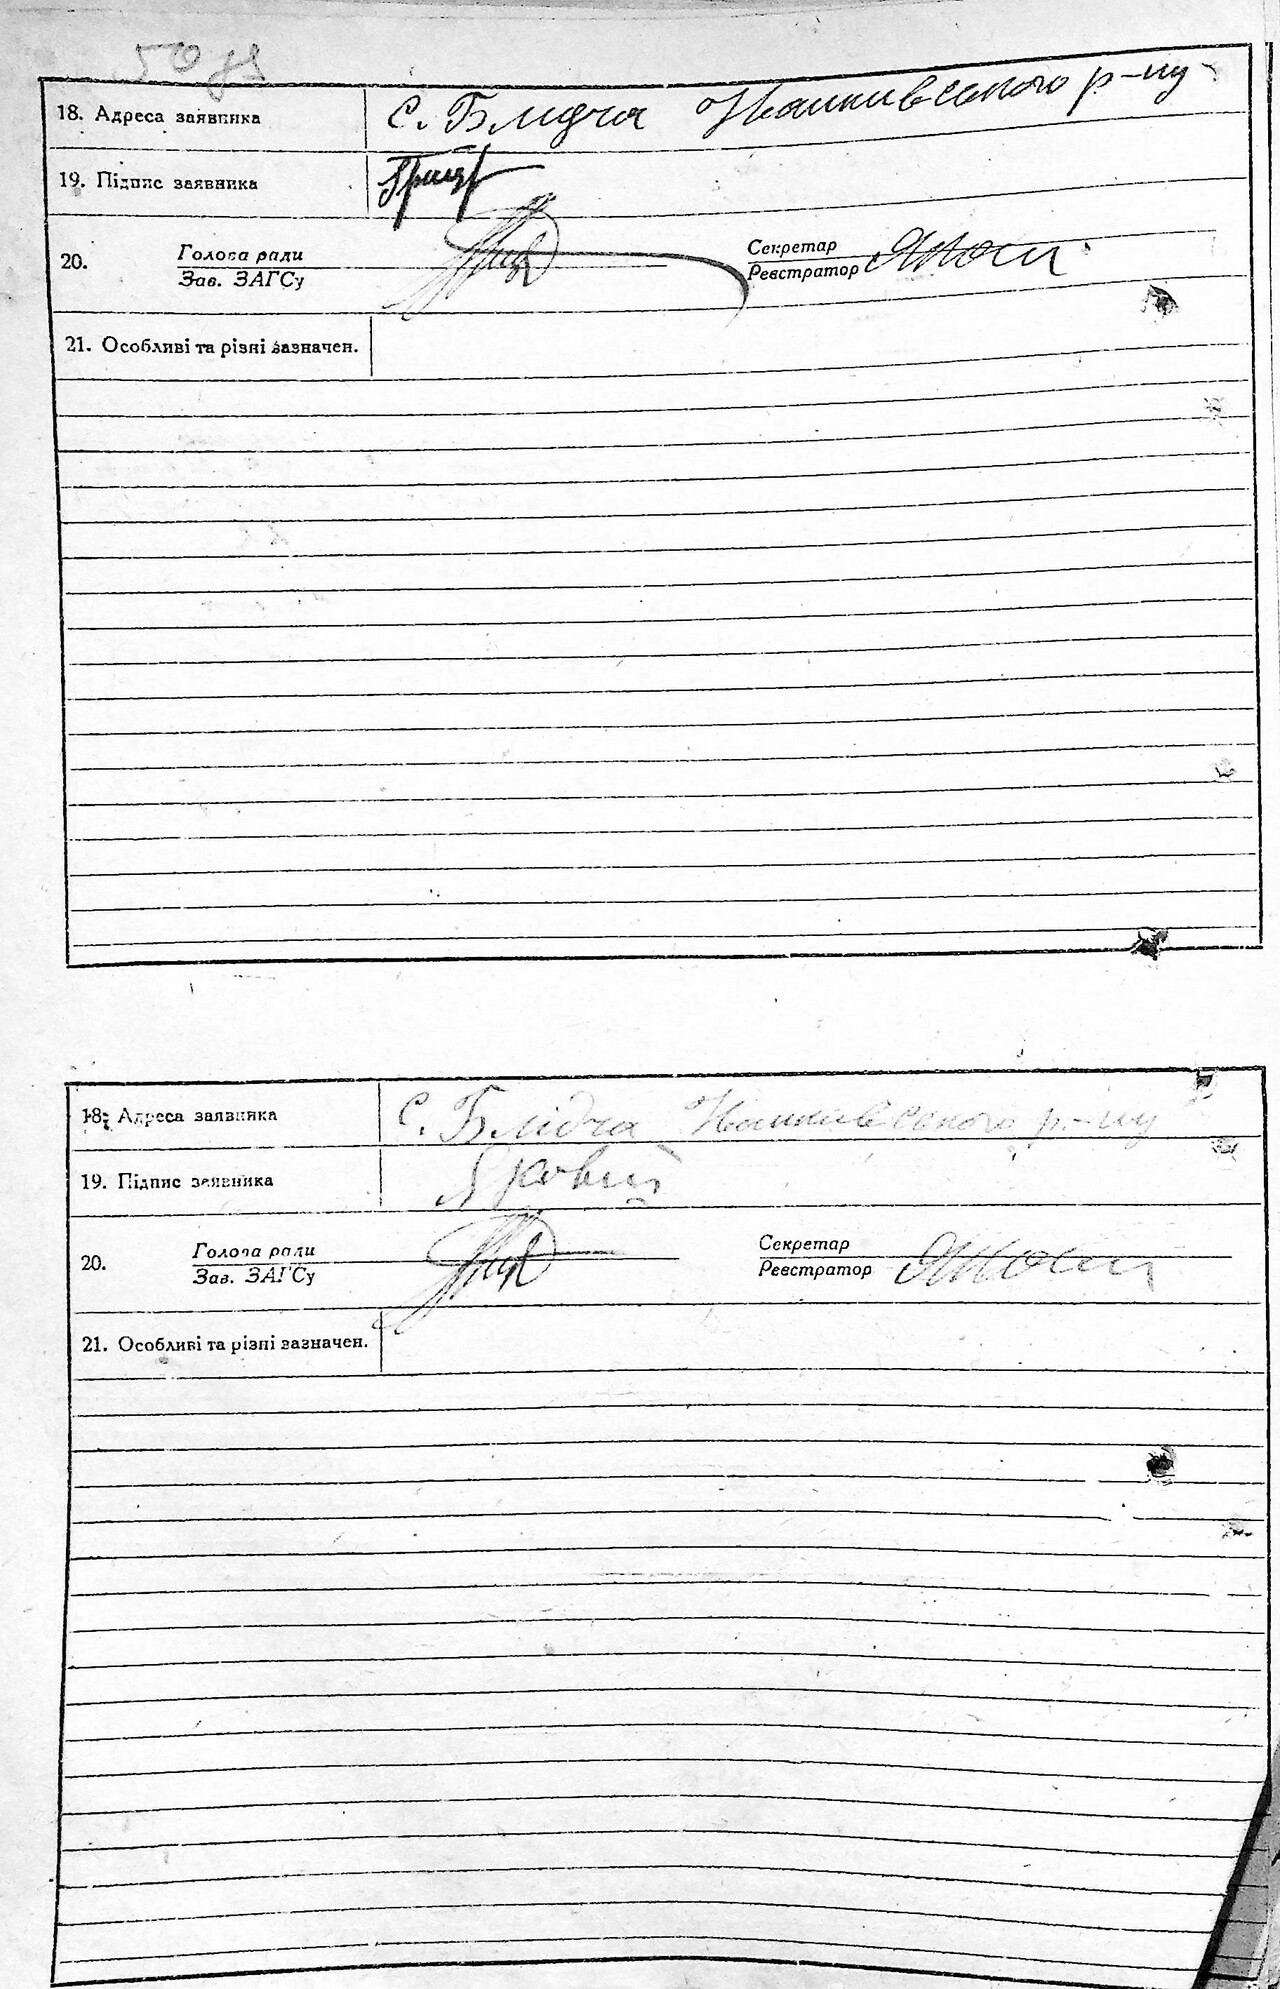 50 зв
18. Адреса заявника с. Блидча Иванкивського р-ну
19. Підпис заявника
20. Голова ради Секретар
Зав. ЗАГСу Реєстратор
21. Особливі та різні зазначен.
18. Адреса заявника с. Блідча Иванкивського р-ну
19. Підпис заявника Яковий
20. Голова ради Секретар
Зав. ЗАГСу Реєстратор
21. Особливі та різні зазначен.